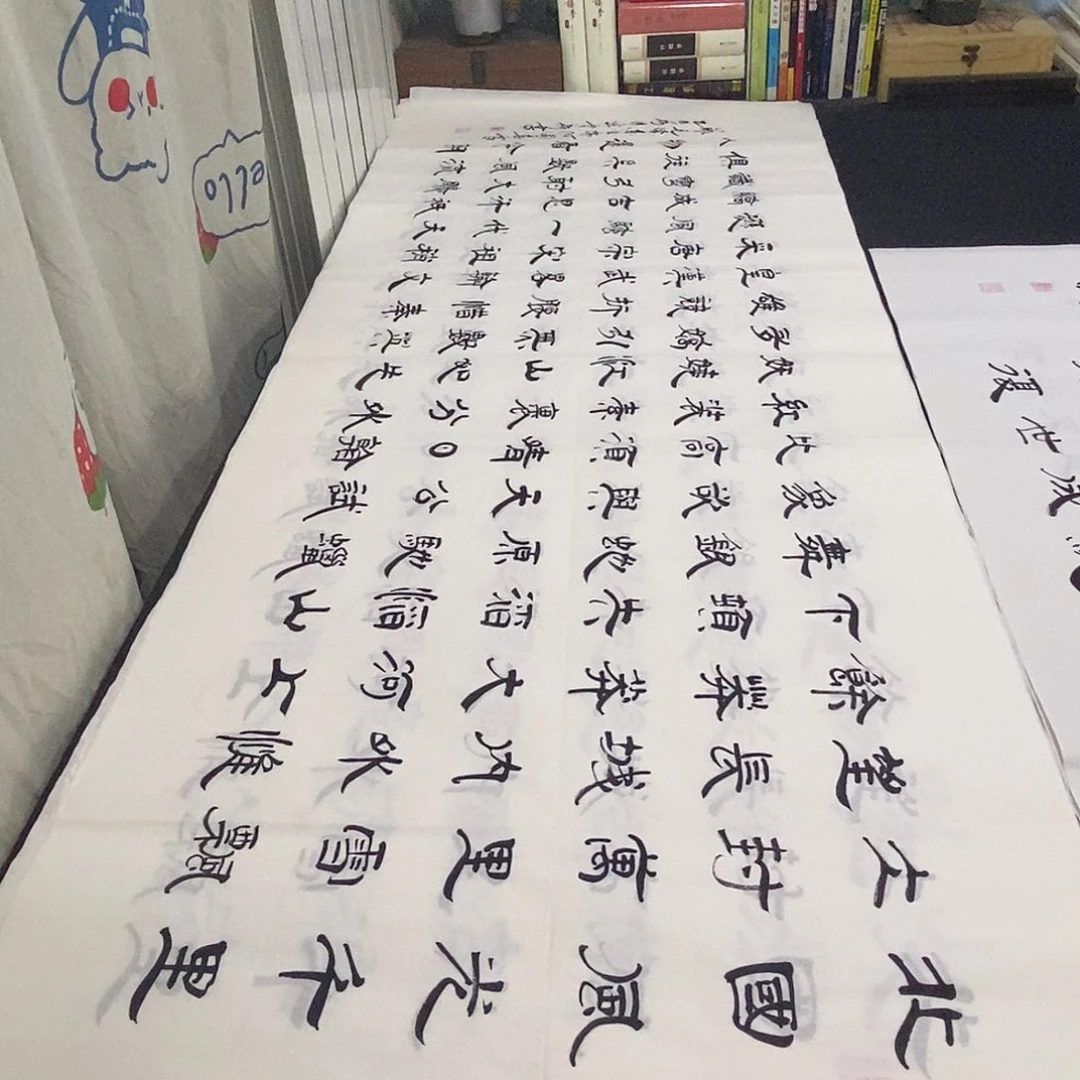 北國風光千里
冰封萬里雪飄
望長城內外惟
餘莽莽大河上
下頓失滔滔山
舞銀蛇原馳蠟
象欲與天公試
比高須晴日看
紅裝素裹分外
妖嬈江山如此
多嬌引無數英
雄競折腰惜秦
皇漢武略輸文
采唐宗宋祖稍
遜風騷一代天
驕成吉思汗只
識彎弓射大雕
俱往矣數風流
人物還看今朝
ello